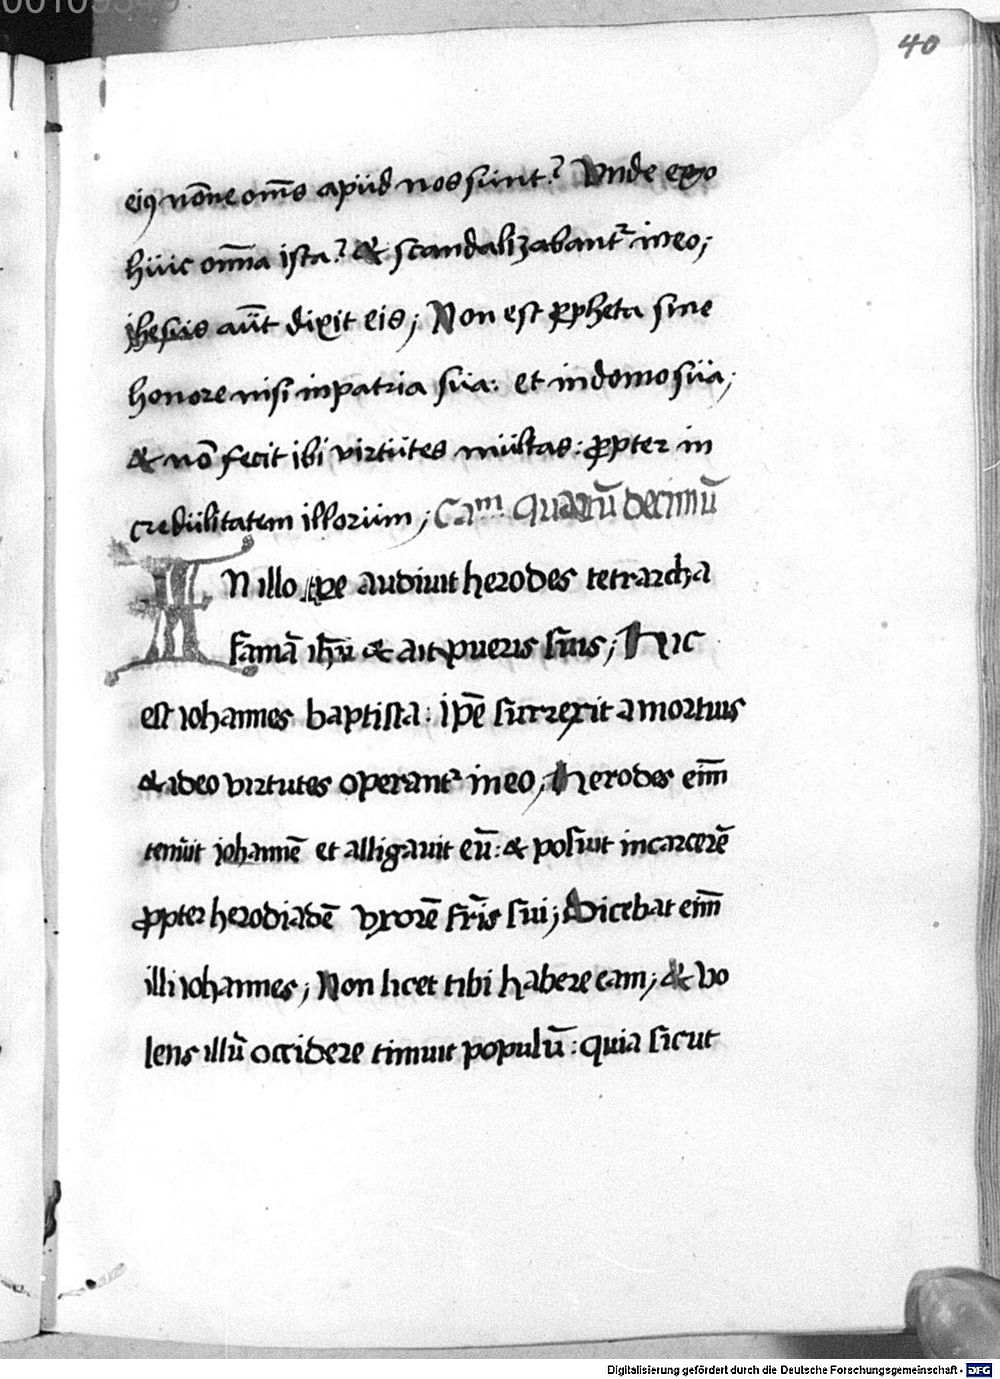 40
eiꝯ nōne om̄s apud nos sunt? Vnde ergo
huic om̄ia ista? & scandalizabant᷑ in eo;
ihesus aūt dixit eis; Non est ꝓpheta sine
honore nisi in patria sua: et in domo sua;
& nō fecit ibi virtutes multas: ꝓpter in
credulitatem illorum; Cam Quartū decimū
IN illo tꝑe audiuit herodes tetrarcha
famā ih̄u & ait pueris suis; Hic
est iohannes baptista: ip̄e surrexit a mortuis
& ideo virtutes operant᷑ in eo; Herodes eīm
tenuit iohannē et alligauit eū: & posuit in carcerē
ꝓpter herodiadē vxorē fr̄is sui; Dicebat eīm
illi iohannes; Non licet tibi habere eam; & vo
lens illū occidere timuit populū: quia sicut
Digitalisierung gefördert durch die Deutsche Forschungsgemeinschaft - DFG